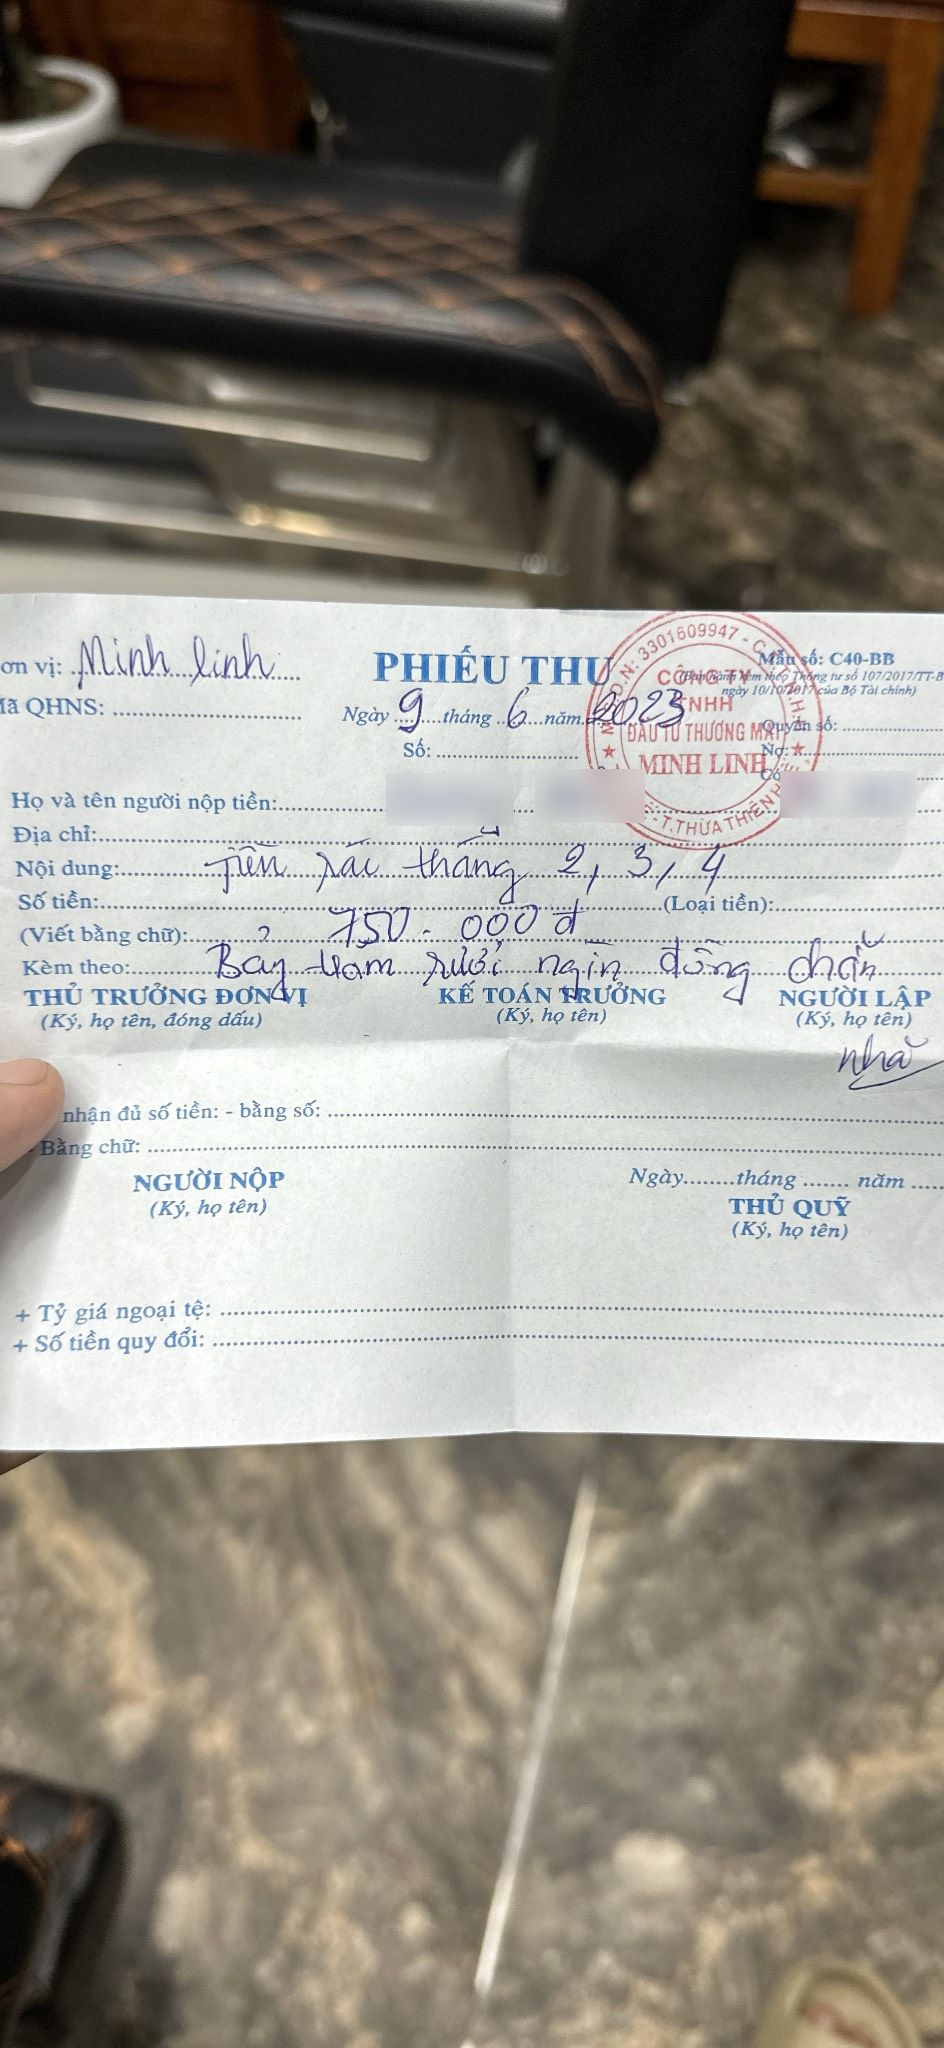 ơn vị: Minh linh
PHIẾU THU
Mẫu số: C40-BB
(Ban hành kèm theo Thông tư số 107/2017/TT-B
ngày 10/10/2017 của Bộ Tài chính)
Mã QHNS:
Ngày 9 tháng 6 năm 2023
Quyển số:
Số:
Nợ:
Có
3301609947 - C.T.T.N.H.H
CÔNG TY
TNHH
ĐẦU TƯ THƯƠNG MẠI
MINH LINH
T.THỪA THIÊN
Họ và tên người nộp tiền:
Địa chỉ:
Nội dung: Tiền rác tháng 2, 3, 4
Số tiền: (Loại tiền):
(Viết bằng chữ): 750.000đ
Kèm theo: Bảy trăm rưỡi ngìn đồng chẵn
THỦ TRƯỞNG ĐƠN VỊ KẾ TOÁN TRƯỞNG NGƯỜI LẬP
(Ký, họ tên, đóng dấu) (Ký, họ tên) (Ký, họ tên)
nhận đủ số tiền: - bằng số:
- Bằng chữ:
NGƯỜI NỘP
(Ký, họ tên)
Ngày tháng năm
THỦ QUỸ
(Ký, họ tên)
+ Tỷ giá ngoại tệ:
+ Số tiền quy đổi: